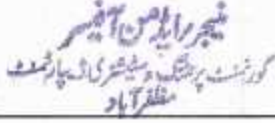 منیجر رایڈمن آفیسر
گورنمنٹ پرنٹنگ و سٹیشنری ڈیپارٹمنٹ
مظفرآباد